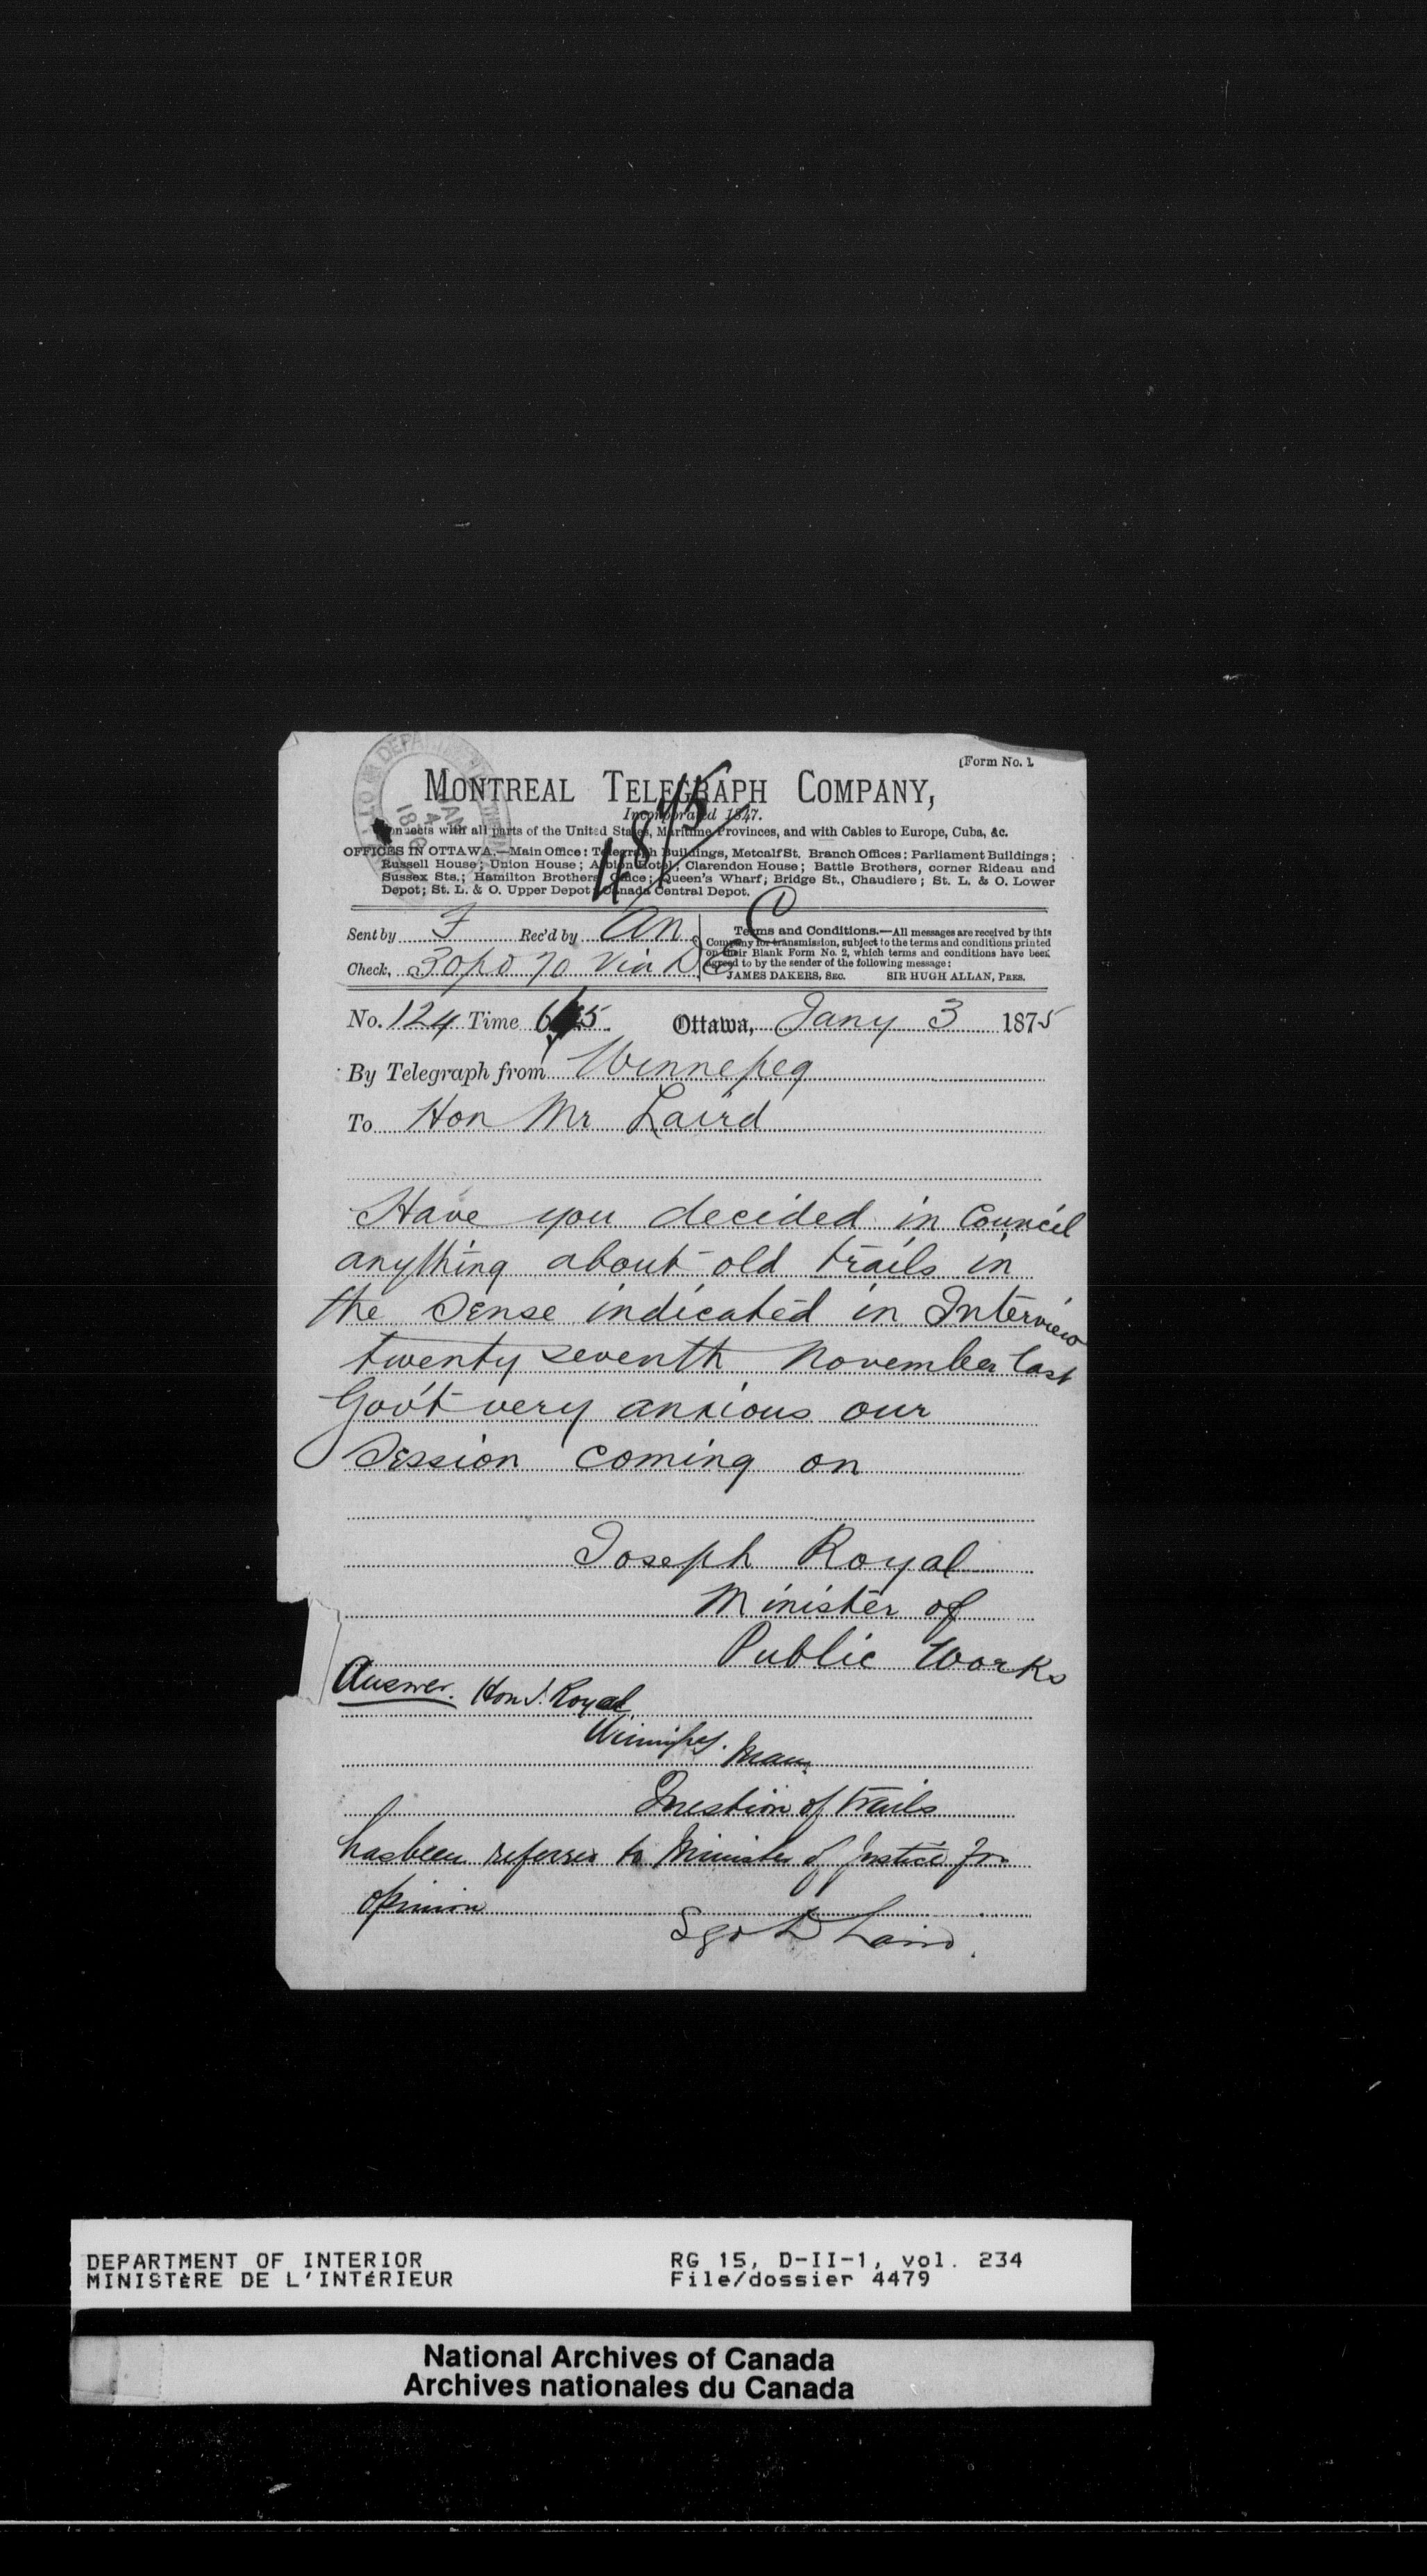 (Form No. 1.
MONTREAL TELEGRAPH COMPANY,
Incorporated 1847.
Connects with all parts of the United States, Maritime Provinces, and with Cables to Europe, Cuba, &c.
OFFICES IN OTTAWA.—Main Office: Telegraph Buildings, Metcalf St. Branch Offices: Parliament Buildings;
Russell House; Union House; Albion Hotel; Clarendon House; Battle Brothers, corner Rideau and
Sussex Sts.; Hamilton Brothers' Office; Queen's Wharf; Bridge St., Chaudiere; St. L. & O. Lower
Depot; St. L. & O. Upper Depot; Canada Central Depot.
Sent by F Rec'd by An
Check, 30 pd 70 Via D
Terms and Conditions.—All messages are received by this
Company for transmission, subject to the terms and conditions printed
on their Blank Form No. 2, which terms and conditions have been
agreed to by the sender of the following message:
JAMES DAKERS, SEC. SIR HUGH ALLAN, PRES.
No. 124 Time
Ottawa, Jany 3 1875
By Telegraph from Winnepeg
To Hon Mr Laird
Have you decided in Council
anything about old trails in
the sense indicated in Interview
twenty seventh November last
Gov't very anxious our
Session coming on
Joseph Royal
Minister of
Public Works
Answer. Hon J. Royal
Winnipeg. Man.
Question of trails
has been referred to Minister of Justice for
opinion
Sgd D Laird.
DEPARTMENT OF INTERIOR
MINISTÈRE DE L'INTÉRIEUR
RG 15, D-II-1, vol. 234
File/dossier 4479
National Archives of Canada
Archives nationales du Canada